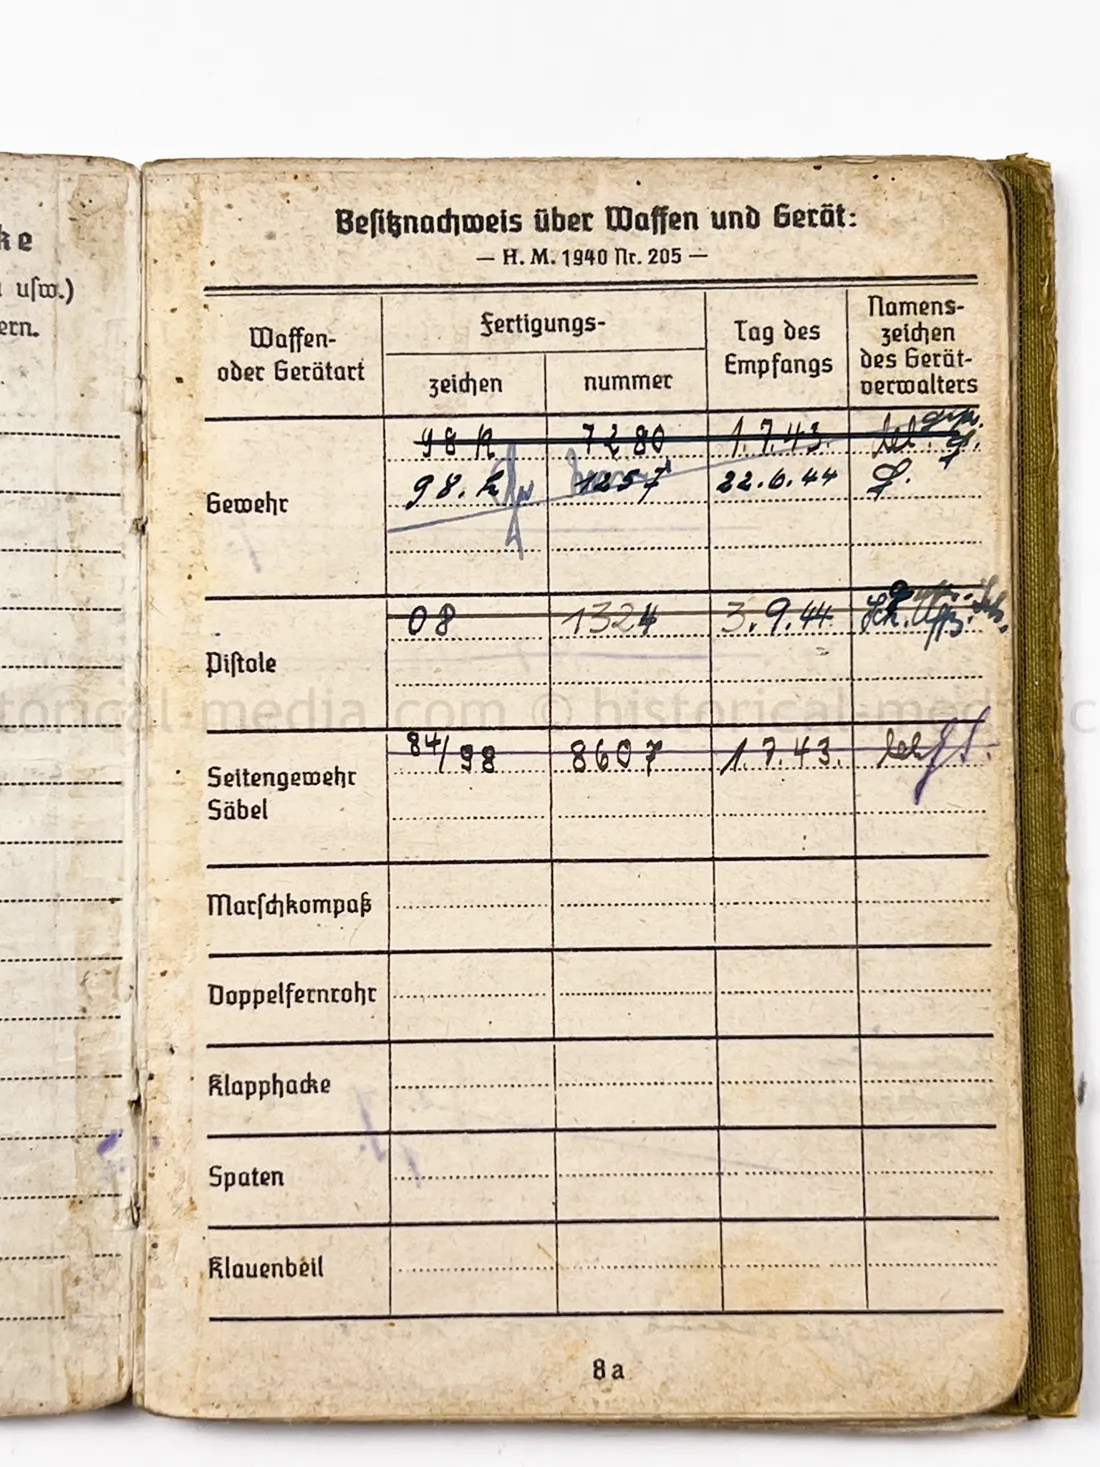 ke
usw.)
ern.
Besitznachweis über Waffen und Gerät:
— H. M. 1940 Nr. 205 —
Waffen-
oder Gerätart
Fertigungs-
zeichen
nummer
Tag des
Empfangs
Namens-
zeichen
des Gerät-
verwalters
Gewehr
98 k 7280 1.7.43
98.k 1257 22.6.44
Pistole
08 1324 3.9.44 Uffz.
Seitengewehr
Säbel
84/98 8607 1.7.43.
Marschkompaß
Doppelfernrohr
Klapphacke
Spaten
Klauenbeil
8a
historical-media.com © historical-media.c